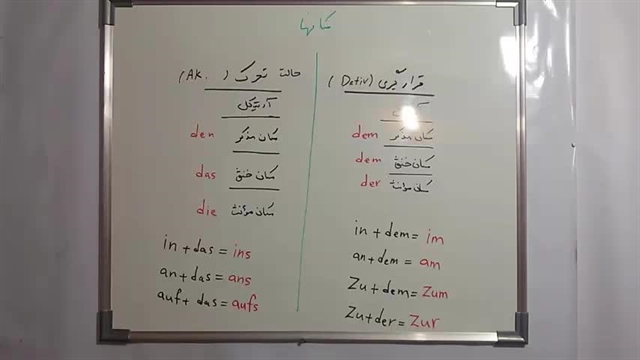 مکانها
قرارگیری (Dativ)
مکان مذکر dem
مکان خنثی dem
مکان مؤنث der
in + dem = im
an + dem = am
Zu + dem = Zum
Zu + der = Zur
حالت تحرک (AK.)
آرتیکل
مکان مذکر den
مکان خنثی das
مکان مؤنث die
in + das = ins
an + das = ans
auf + das = aufs